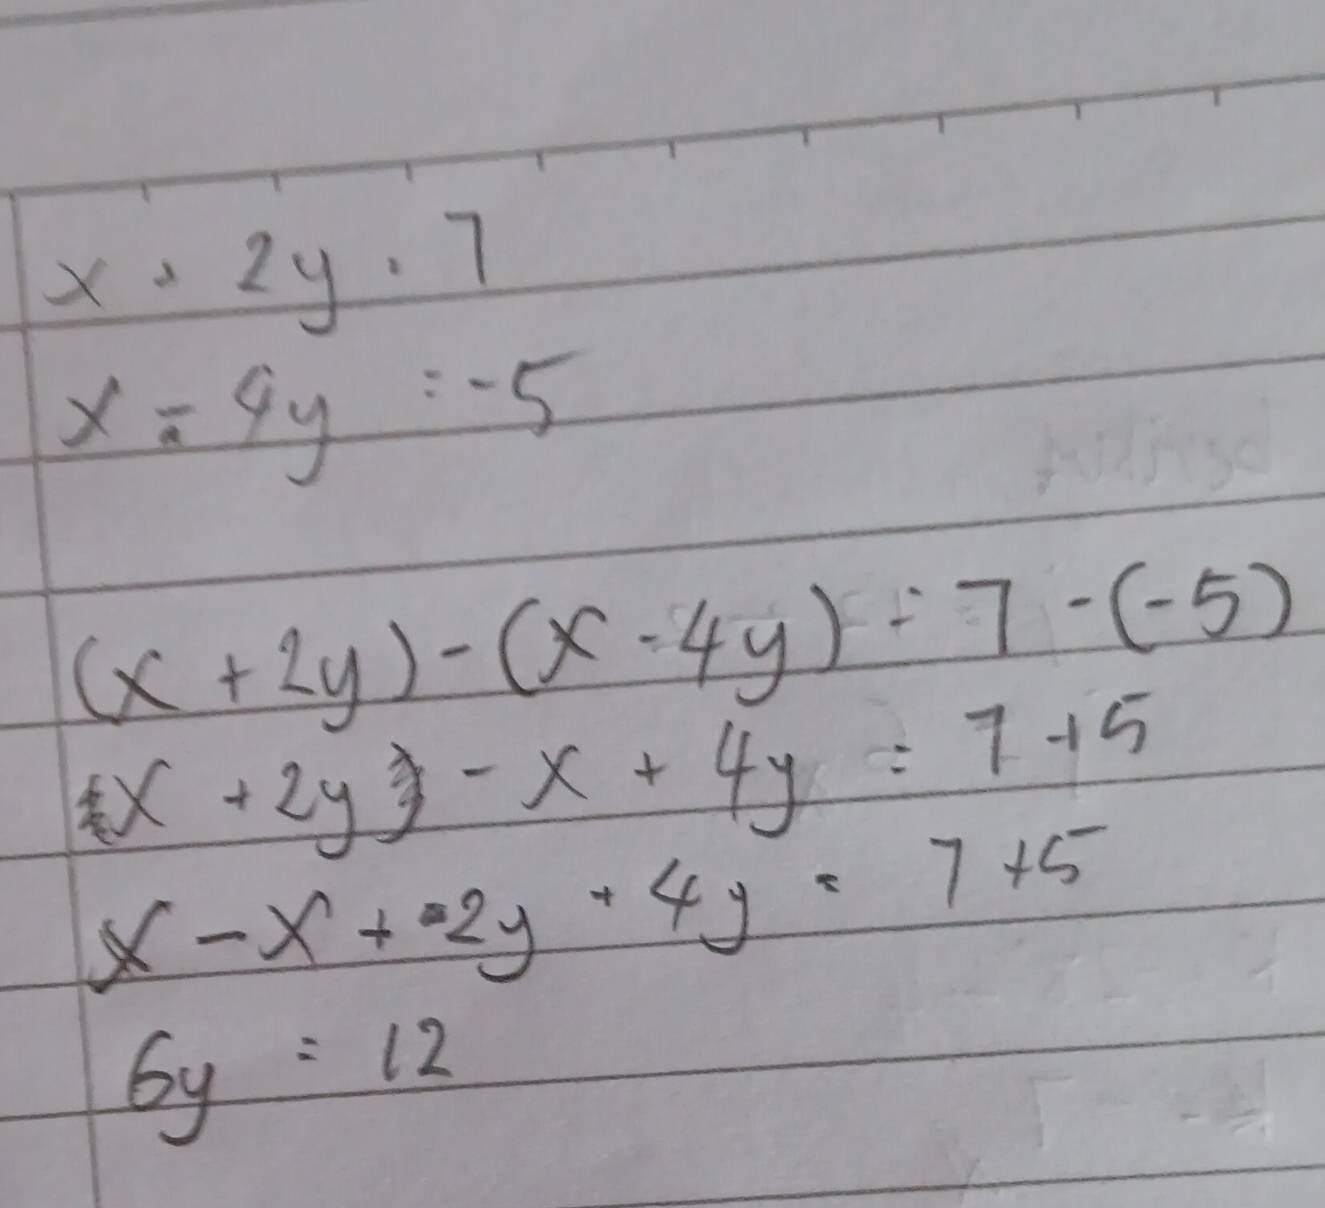 x + 2y = 7
x - 4y = -5
(x + 2y) - (x - 4y) = 7 - (-5)
x + 2y - x + 4y = 7 + 5
x - x + 2y + 4y = 7 + 5
6y = 12